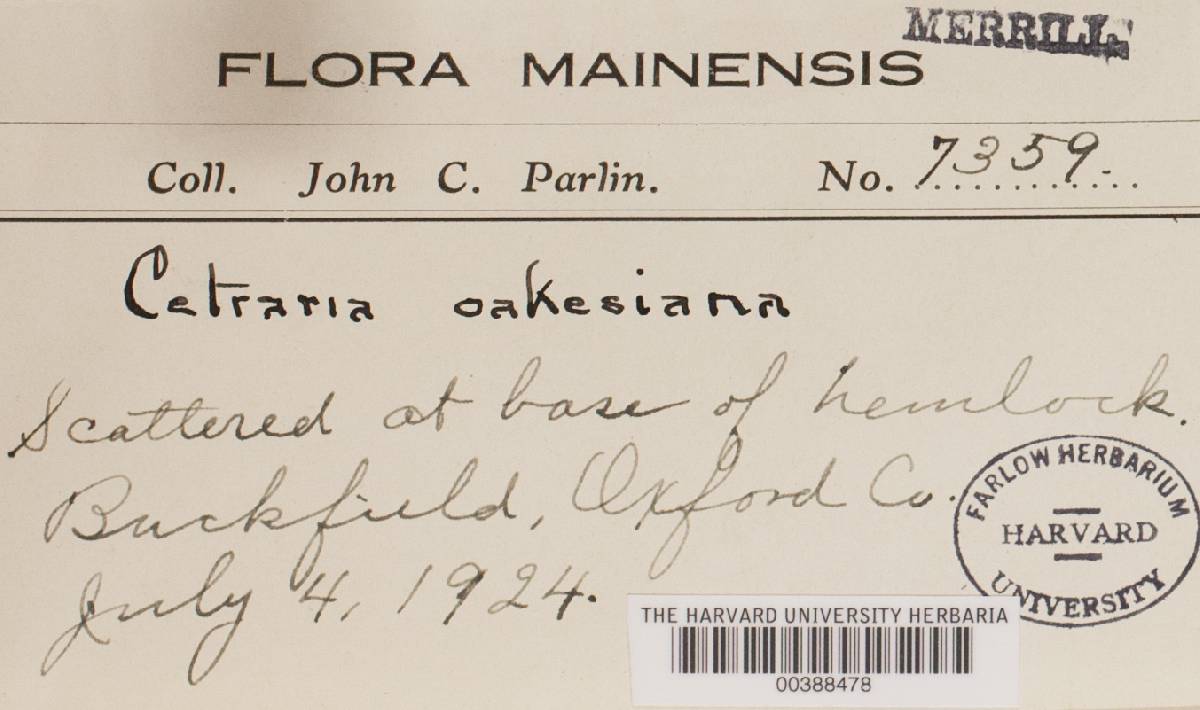 MERRILL
FLORA MAINENSIS
Coll. John C. Parlin. No. 7359.
Cetraria oakesiana
Scattered at base of hemlock.
Buckfield, Oxford Co.
July 4, 1924.
FARLOW HERBARIUM
HARVARD
UNIVERSITY
THE HARVARD UNIVERSITY HERBARIA
00388478